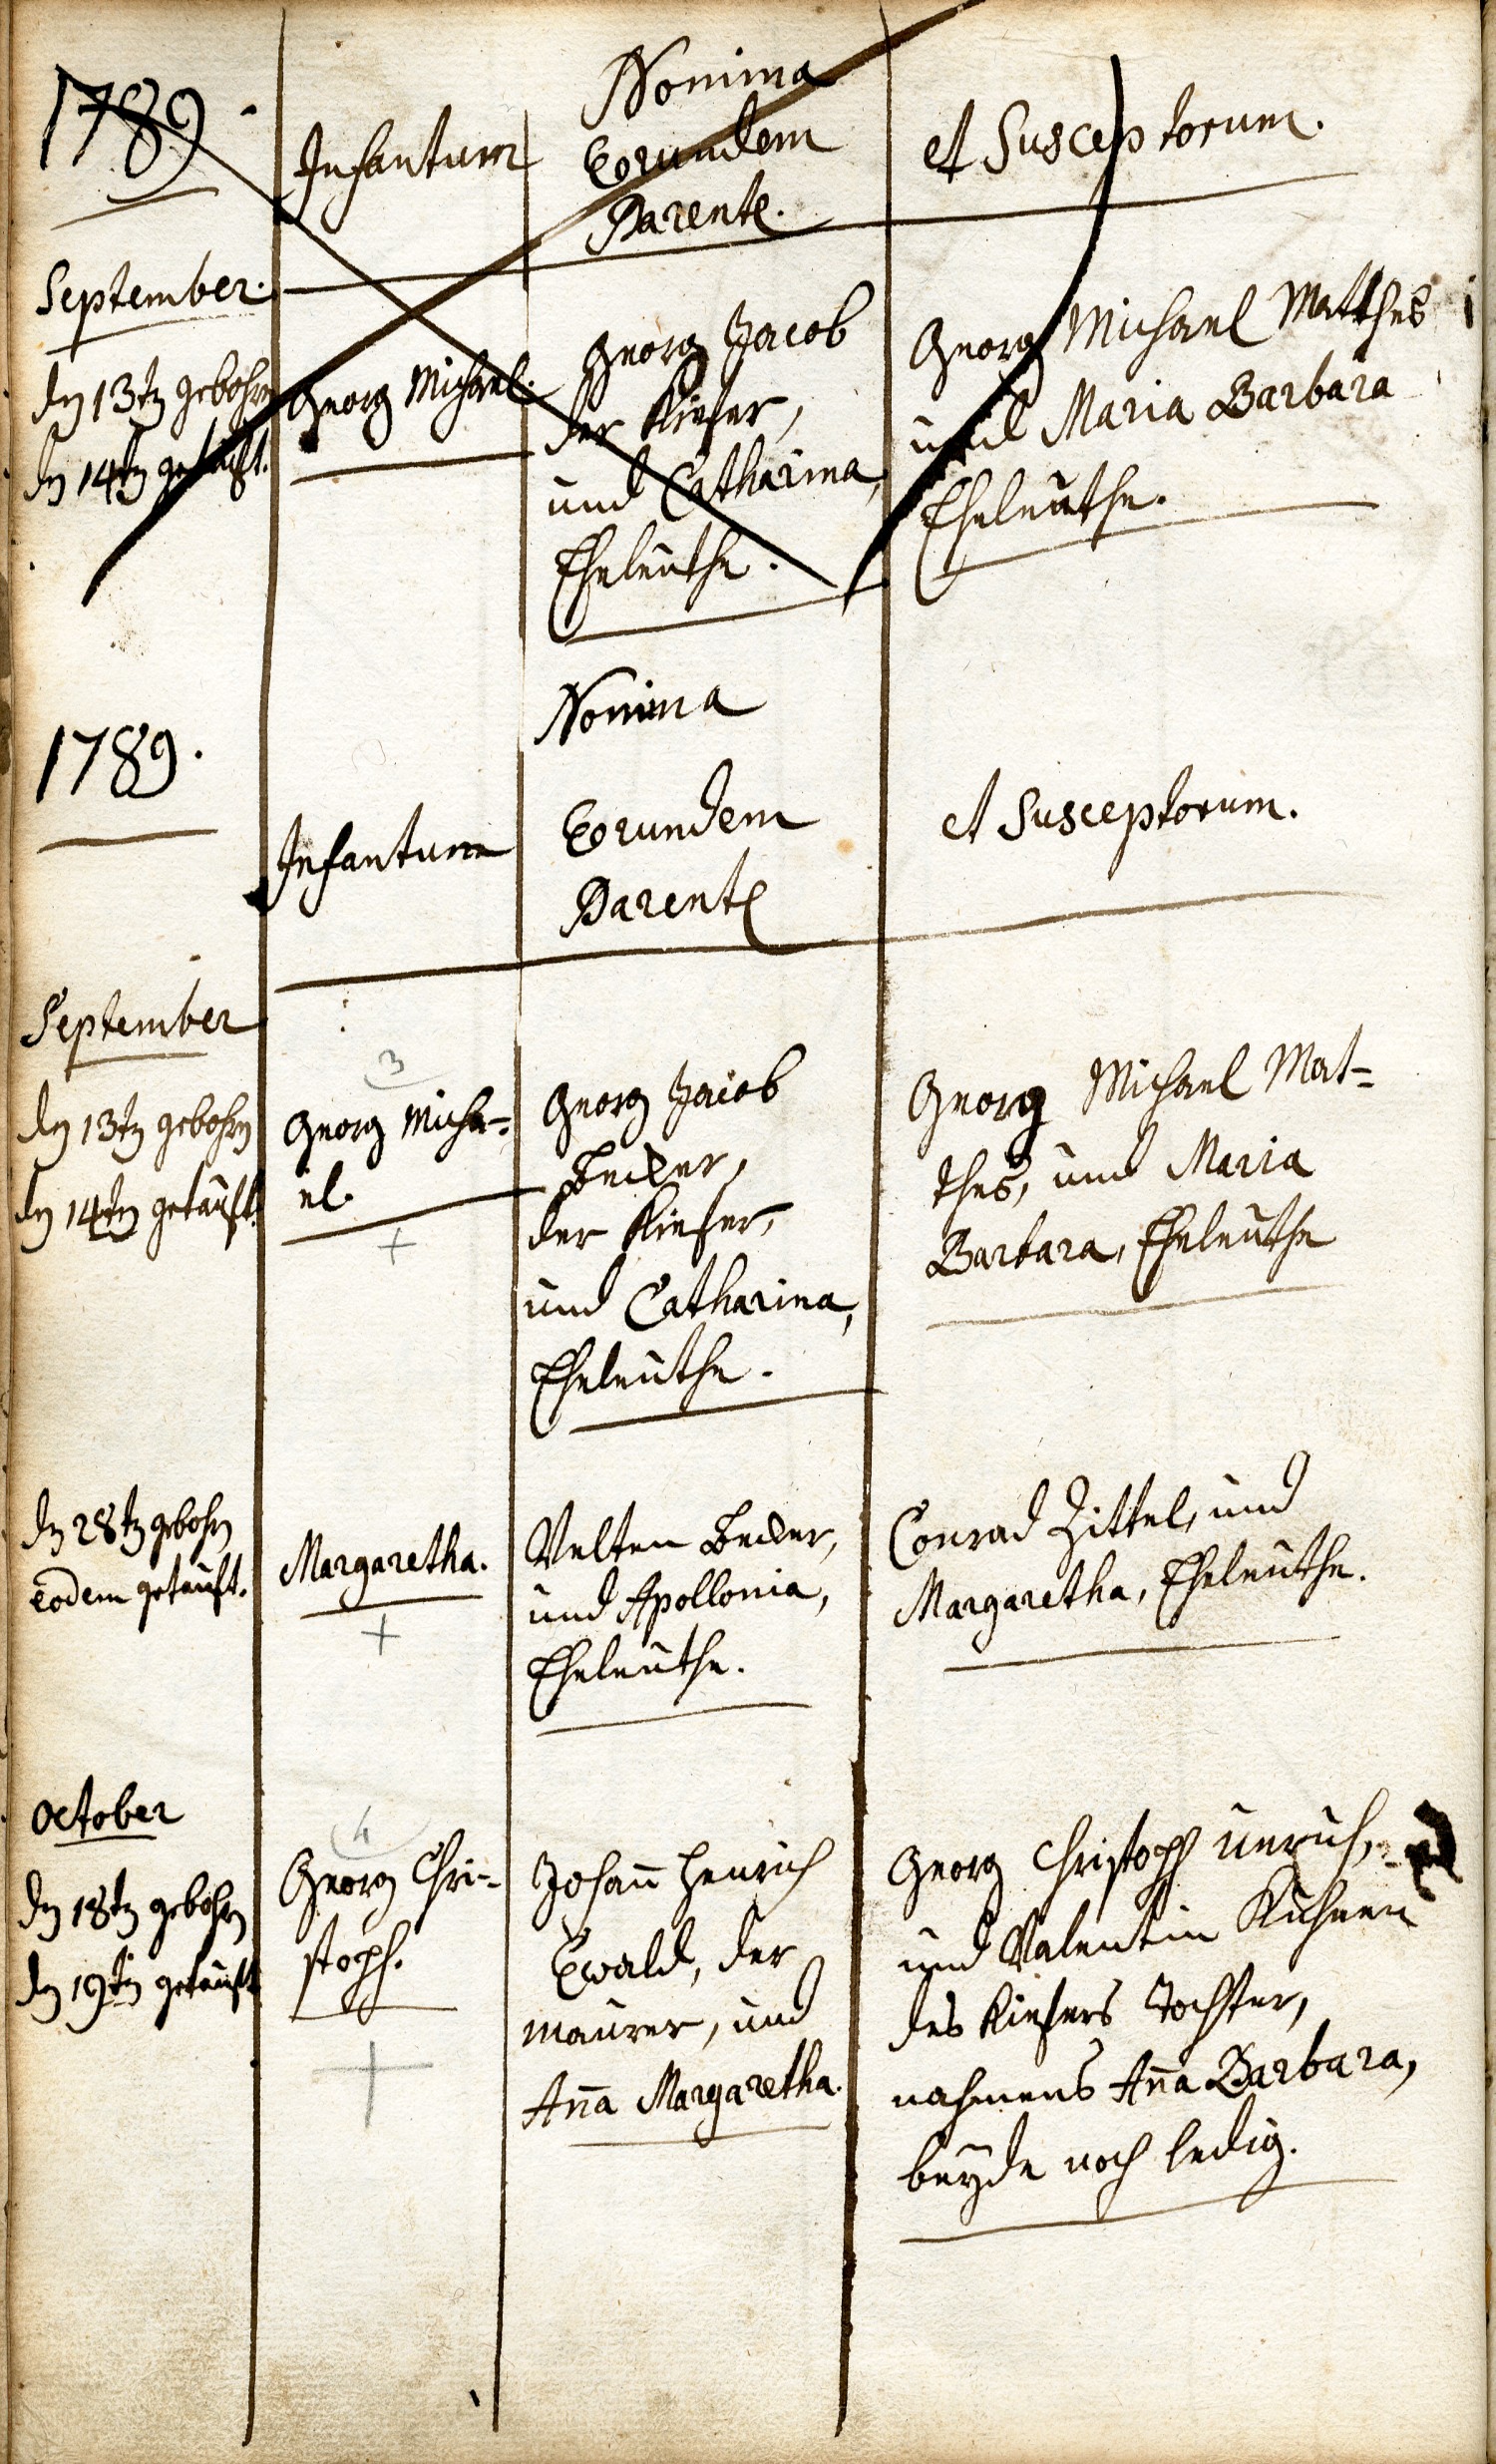 1789.
Nomina
Infantum
Eorundem
Parente.
et Susceptorum.
September.
den 13ten gebohren
den 14ten getauft.
Georg Michael.
Georg Jacob
der Kiefer,
und Catharina,
Eheleuthe.
Georg Michael Matthes
und Maria Barbara
Eheleuthe.
1789.
Nomina
Infantum
Eorundem
Parente
et Susceptorum.
September
den 13ten gebohren
den 14ten getauft.
3
Georg Micha-
el.
+
Georg Jacob
Becker,
der Kiefer,
und Catharina,
Eheleuthe.
Georg Michael Mat=
thes, und Maria
Barbara, Eheleuthe
den 28ten gebohren
eodem getauft.
Margaretha.
+
Velten Becker,
und Apollonia,
Eheleuthe.
Conrad Zittel, und
Margaretha, Eheleuthe.
October
den 18ten gebohren
den 19ten getauft
4
Georg Chri-
stoph.
+
Johañ Henrich
Ewald, der
Maurer, und
Aña Margaretha.
Georg Christoph Unruh,
und Valentin Kuhnen
des Kiefers Tochter,
nahmens Aña Barbara,
beyde noch ledig.